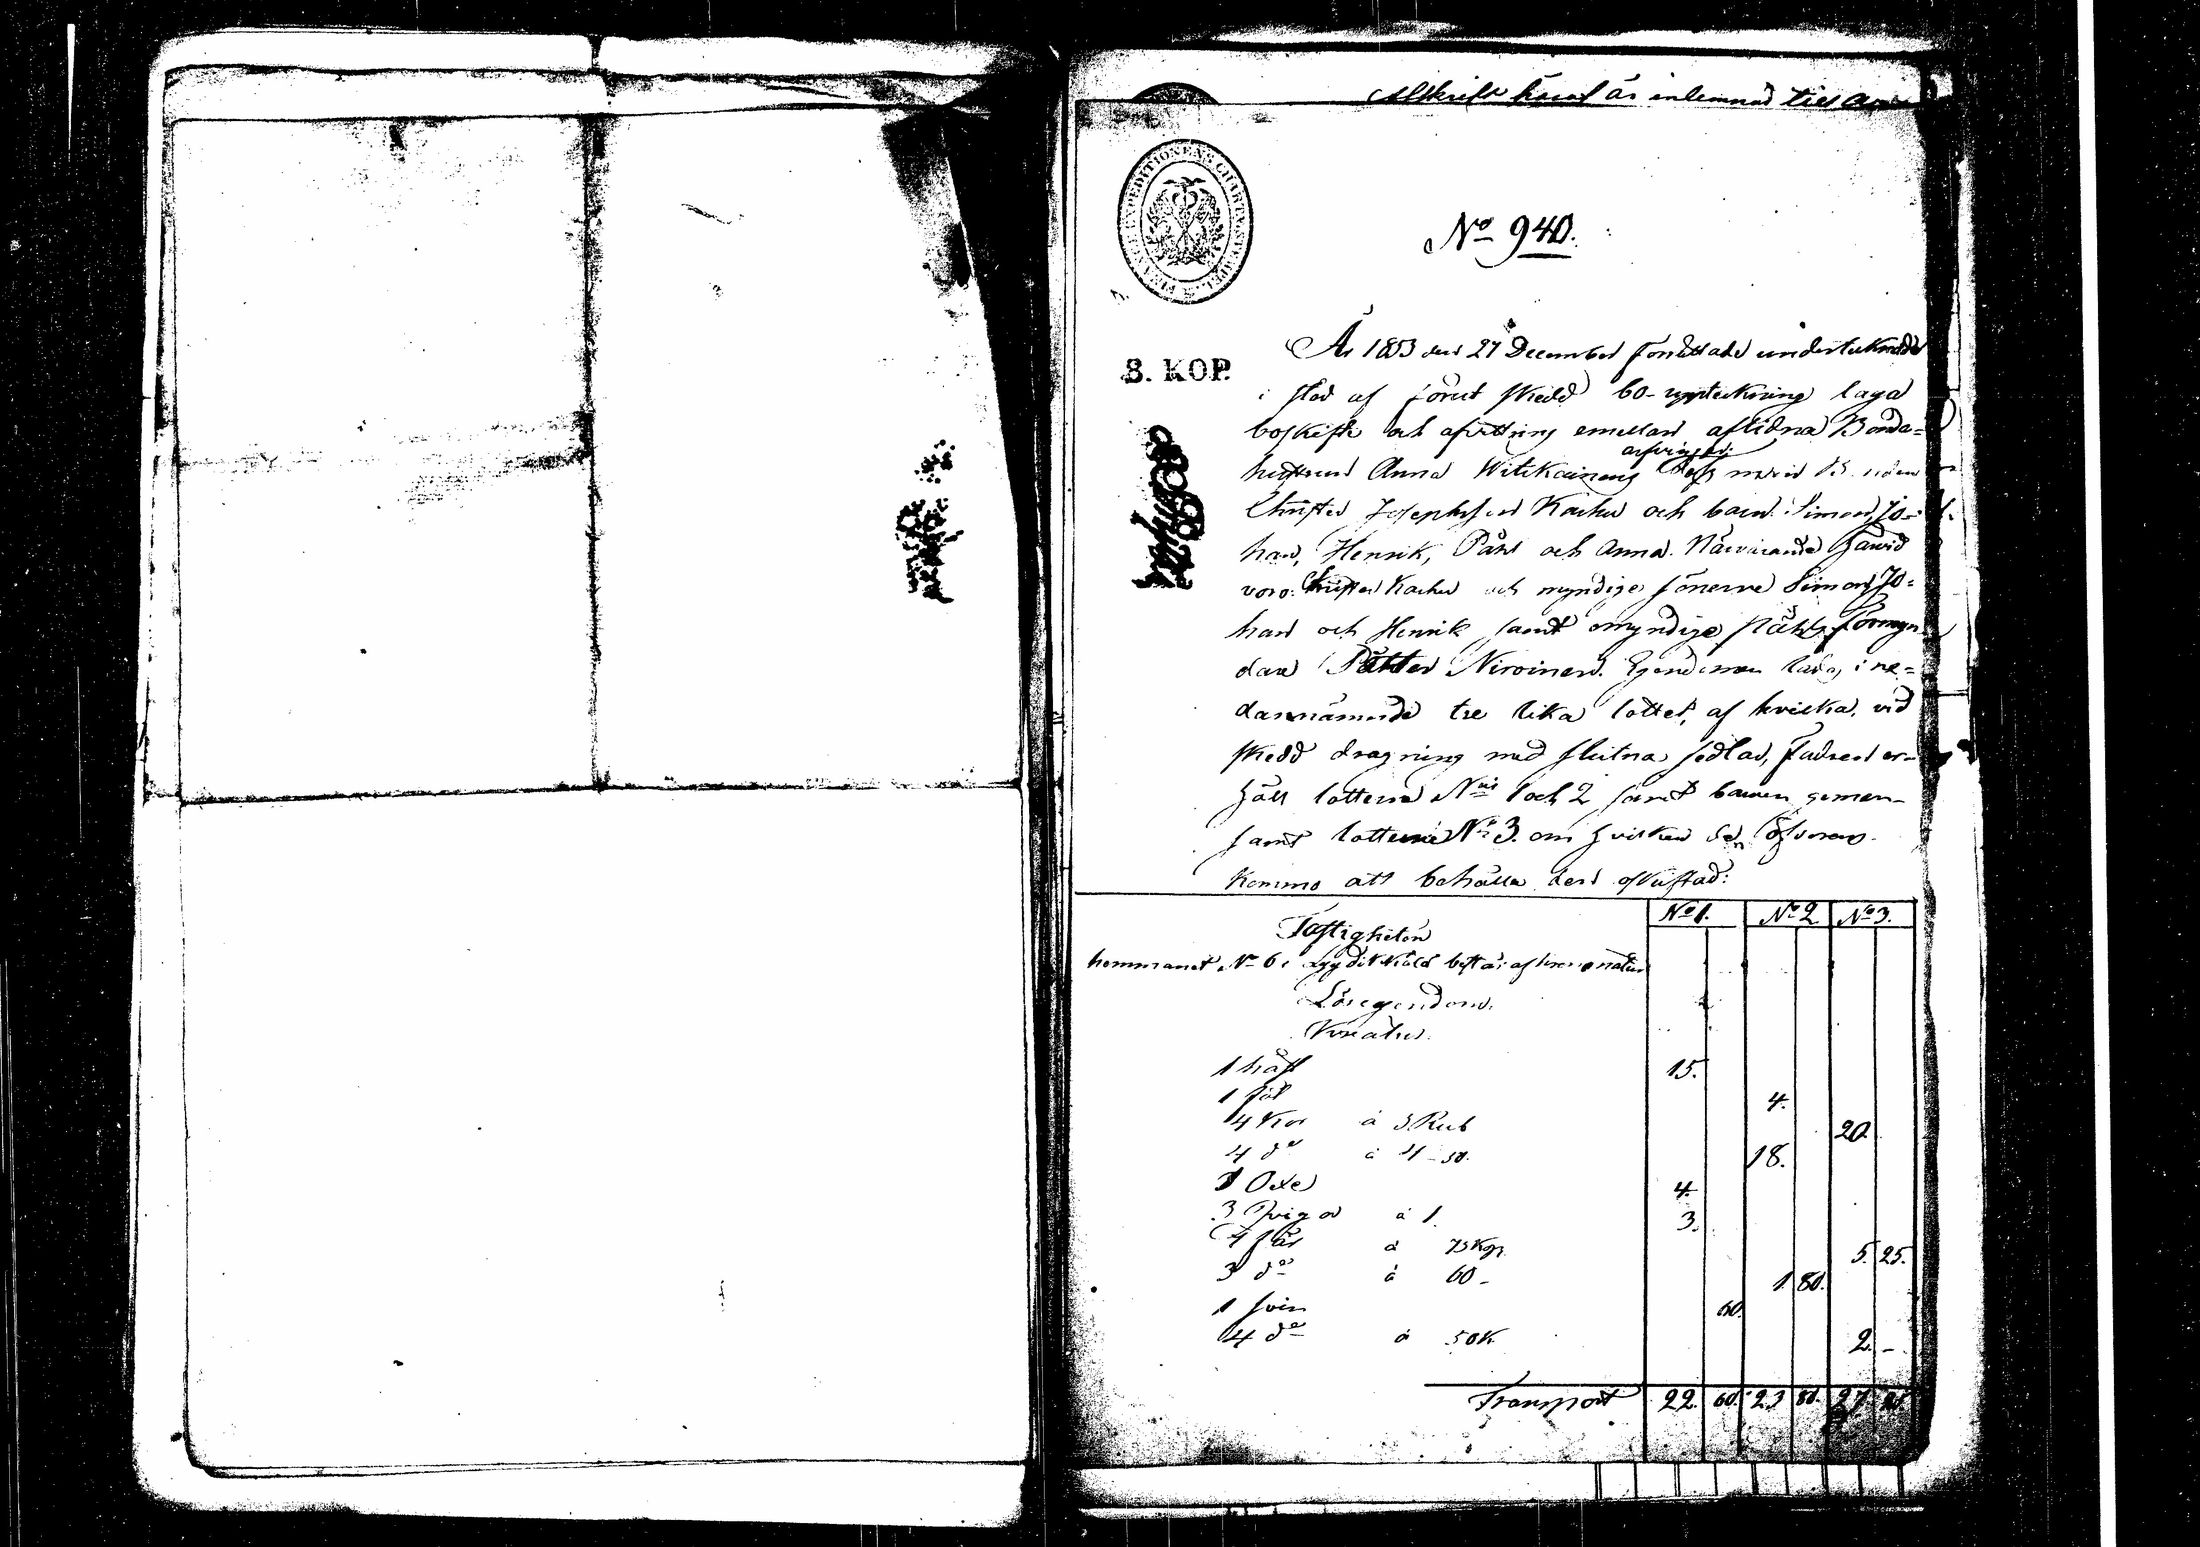 Afskrift häraf är inlemnad till
FINANCE EXPEDITIONENS CHARTÆ STEMPEL
No 940.
8. KOP.
År 1853 den 27 December förrättade undertecknade
i stad af förut skedd bo-uppteckning laga
boskifte och afvittring emellan aflidna Bonda-
hustrun Anna Witikainens arfvingar: man Bonden
Christer Josephsson Karhu och barn: Simon, Jo-
han, Henrik, Påhl och Anna. Närvarande härvid
voro: Christer Karhu och myndige sönerne Simon, Jo-
han och Henrik samt omyndige Påhls förmyn-
dare Petter Niroinen. Egendomen lades i ne-
dannämnde tre lika lotter, af hvilka, vid
skedd dragning med slutna sedlar, Fadren er-
höll lotterne N:ris 1 och 2 samt barnen gemen-
samt lotten No 3. om hvilken de öfverens-
kommo att behålla den oskiftad:
No 1. No 2 No 3.
Fastigheten
hemmanet No 6 i består af krono natur
Lösegendom.
Kreatur.
1 häst 15.
1 föl 4.
4 Kor à 5 Rub 20.
4 do à 4 - 50. 18.
1 Oxe 4.
3 Qvigor à 1. 3.
7 får à 75 Kop. 5. 25.
3 do à 60 - 1 80.
1 svin 60.
4 do à 50 K 2. -
Transport 22. 60. 23 80. 27. 25.